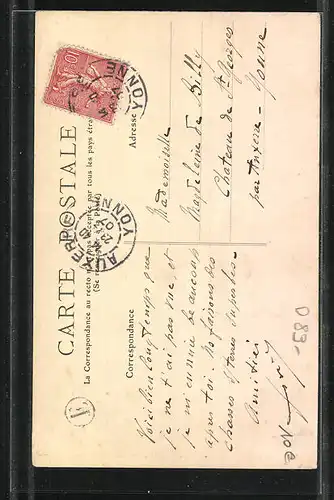 CARTE POSTALE
La Correspondance au recto n'est pas acceptée par tous les pays étrangers
(Se renseigner à la Poste)
Correspondance
Adresse
Voici bien longtemps que
je ne t'ai pas vue, et
je m'ennuie beaucoup
après toi. Nous faisons des
chasses à terres superbes
Amitiés
Mademoiselle
Magdeleine de Billy
Chateau de St Georges
par Auxerre - Yonne
YONNE
AUXERRE
YONNE
E
10